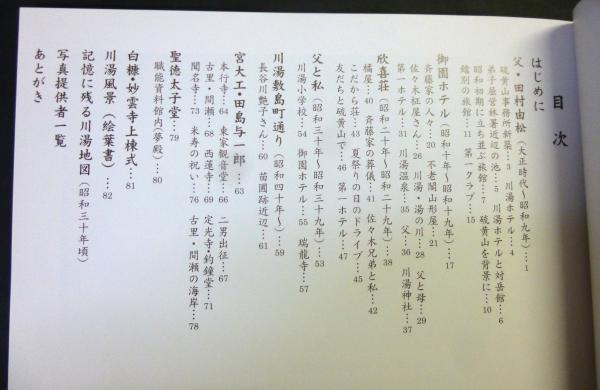 目次
はじめに
父・田村由松(大正時代〜昭和九年)…1
硫黄山事務所新築…3　川湯ホテル…4
弟子屈営林署近辺の池…5　川湯ホテルと対岳館…6
昭和初期に立ち並ぶ旅館…7　硫黄山を背景に…10
館別の旅館…11　第一クラブ…15
御園ホテル(昭和十年〜昭和十九年)…17
斉藤家の人々…20　不老閣山形屋…21
佐々木柾屋さん…26　川湯・湯の川…28　父と母…29
第一ホテル…31　川湯温泉…35　父…36　川湯神社…37
欣喜荘(昭和二十年〜昭和二十九年)…38
橘屋…40　斉藤家の葬儀…41　佐々木兄弟と私…42
こだから荘…43　夏祭りの日のドライブ…45
友だちと硫黄山で…46　第一ホテル…47
父と私(昭和三十年〜昭和三十九年)…53
川湯小学校…54　御園ホテル…55　瑞龍寺…57
川湯敷島町通り(昭和四十年〜)…59
長谷川艶子さん…60　苗圃跡近辺…61
宮大工・田島与一郎…63
本行寺…64　東家観音堂…66　二男出征…67
古里・間瀬…68　西蓮寺…69　定光寺・釣鐘堂…71
聞名寺…73　米寿の祝い…76　古里・間瀬の海岸…78
聖徳太子堂…79
職能資料館内(夢殿)…80
白糠・妙雲寺上棟式…81
川湯風景(絵葉書)…82
記憶に残る川湯地図(昭和三十年頃)
写真提供者一覧
あとがき